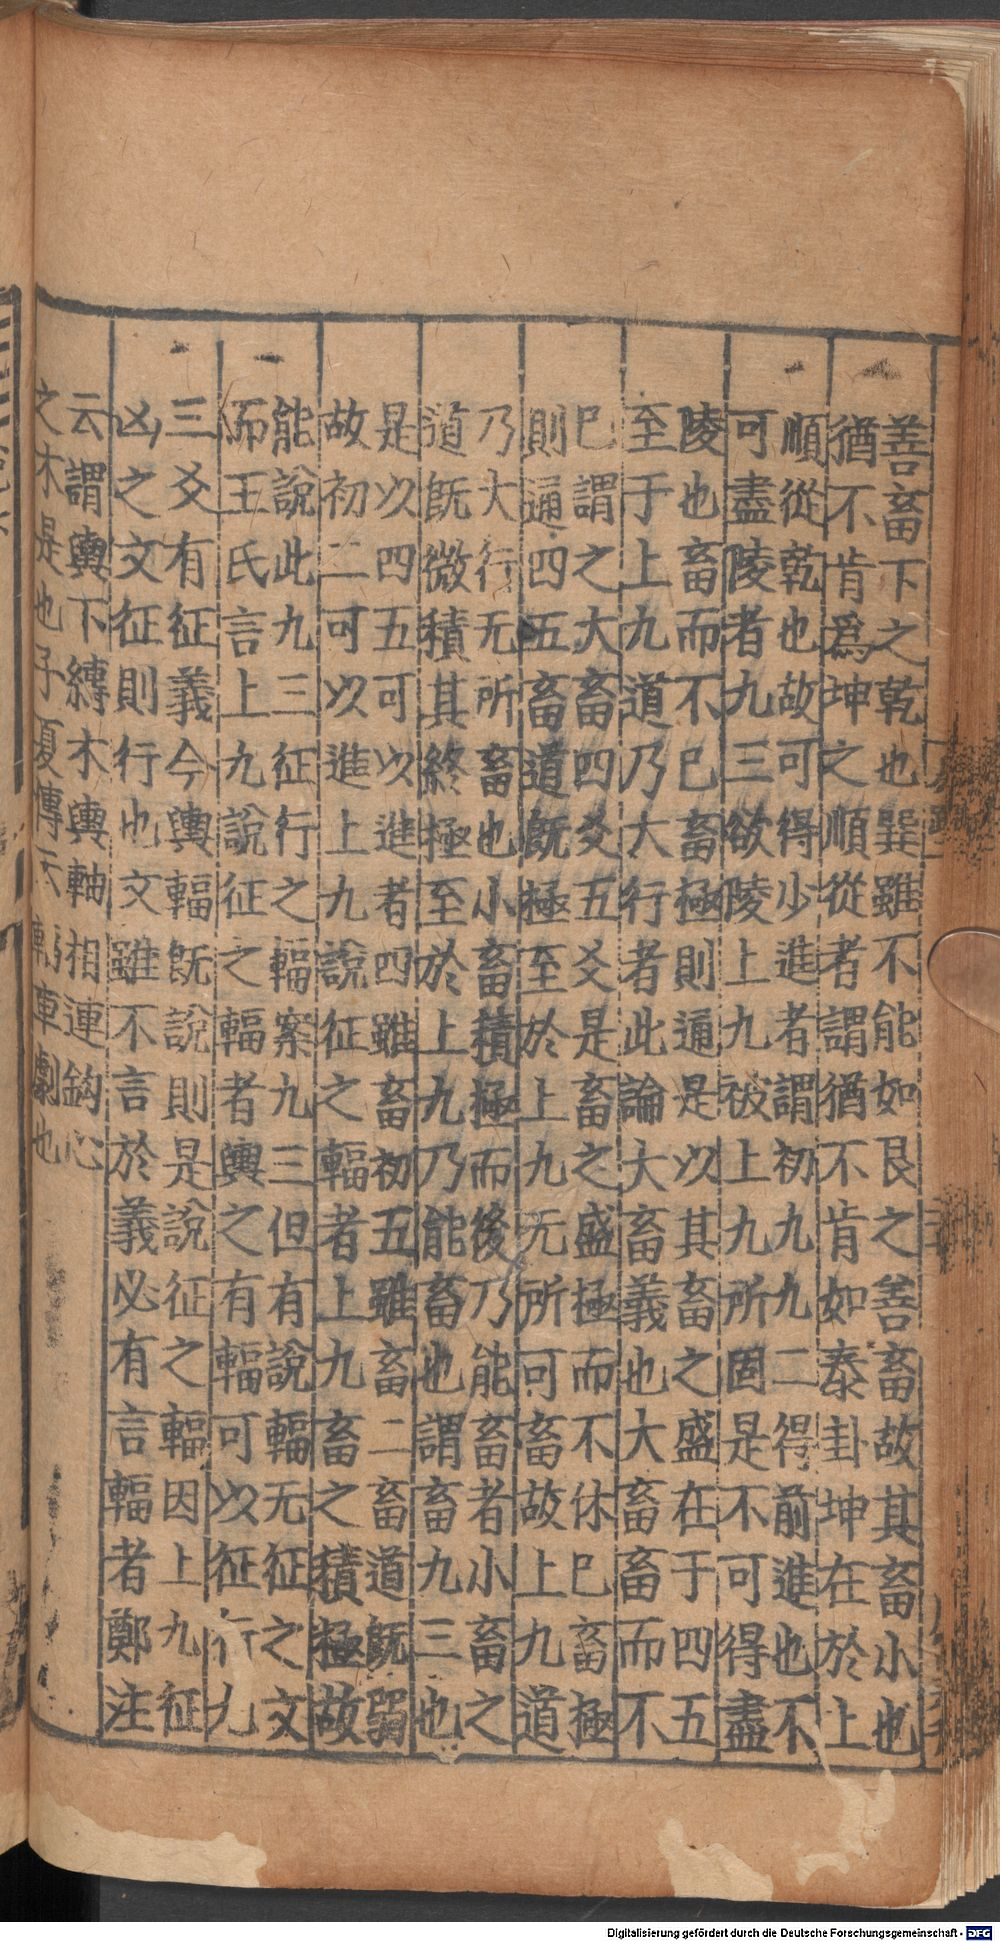 善畜下之乾也巽雖不能如艮之善畜故其畜小也
猶不肯爲坤之順從者謂猶不肯如泰卦坤在於上
順從乾也故可得少進者謂初九九二得前進也不
可盡陵者九三欲陵上九被上九所固是不可得盡
陵也畜而不巳畜極則通是以其畜之盛在于四五
至于上九道乃大行者此論大畜義也大畜畜而不
巳謂之大畜四爻五爻是畜之盛極而不休巳畜極
則通四五畜道旣極至於上九无所可畜故上九道
乃大行无所畜也小畜積極而後乃能畜者小畜之
道旣微積其終極至於上九乃能畜也謂畜九三也
是以四五可以進者四雖畜初五雖畜二畜道旣弱
故初二可以進上九說征之輻者上九畜之積極故
能說此九三征行之輻案九三但有說輻无征之文
而王氏言上九說征之輻者輿之有輻可以征行九
三爻有征義今輿輻旣說則是說征之輻因上九征
凶之文征則行也文雖不言於義必有言輻者鄭注
云謂輿下縛木輿軸相連鈎心
之木是也子夏傳云
車劇也
Digitalisierung gefördert durch die Deutsche Forschungsgemeinschaft - DFG